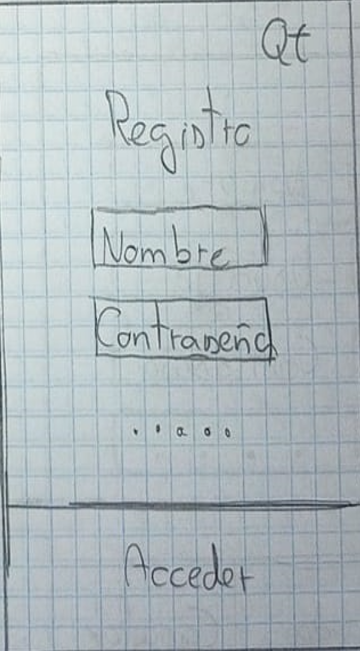 Qt
Registro
Nombre
Contraseña
.....
Acceder